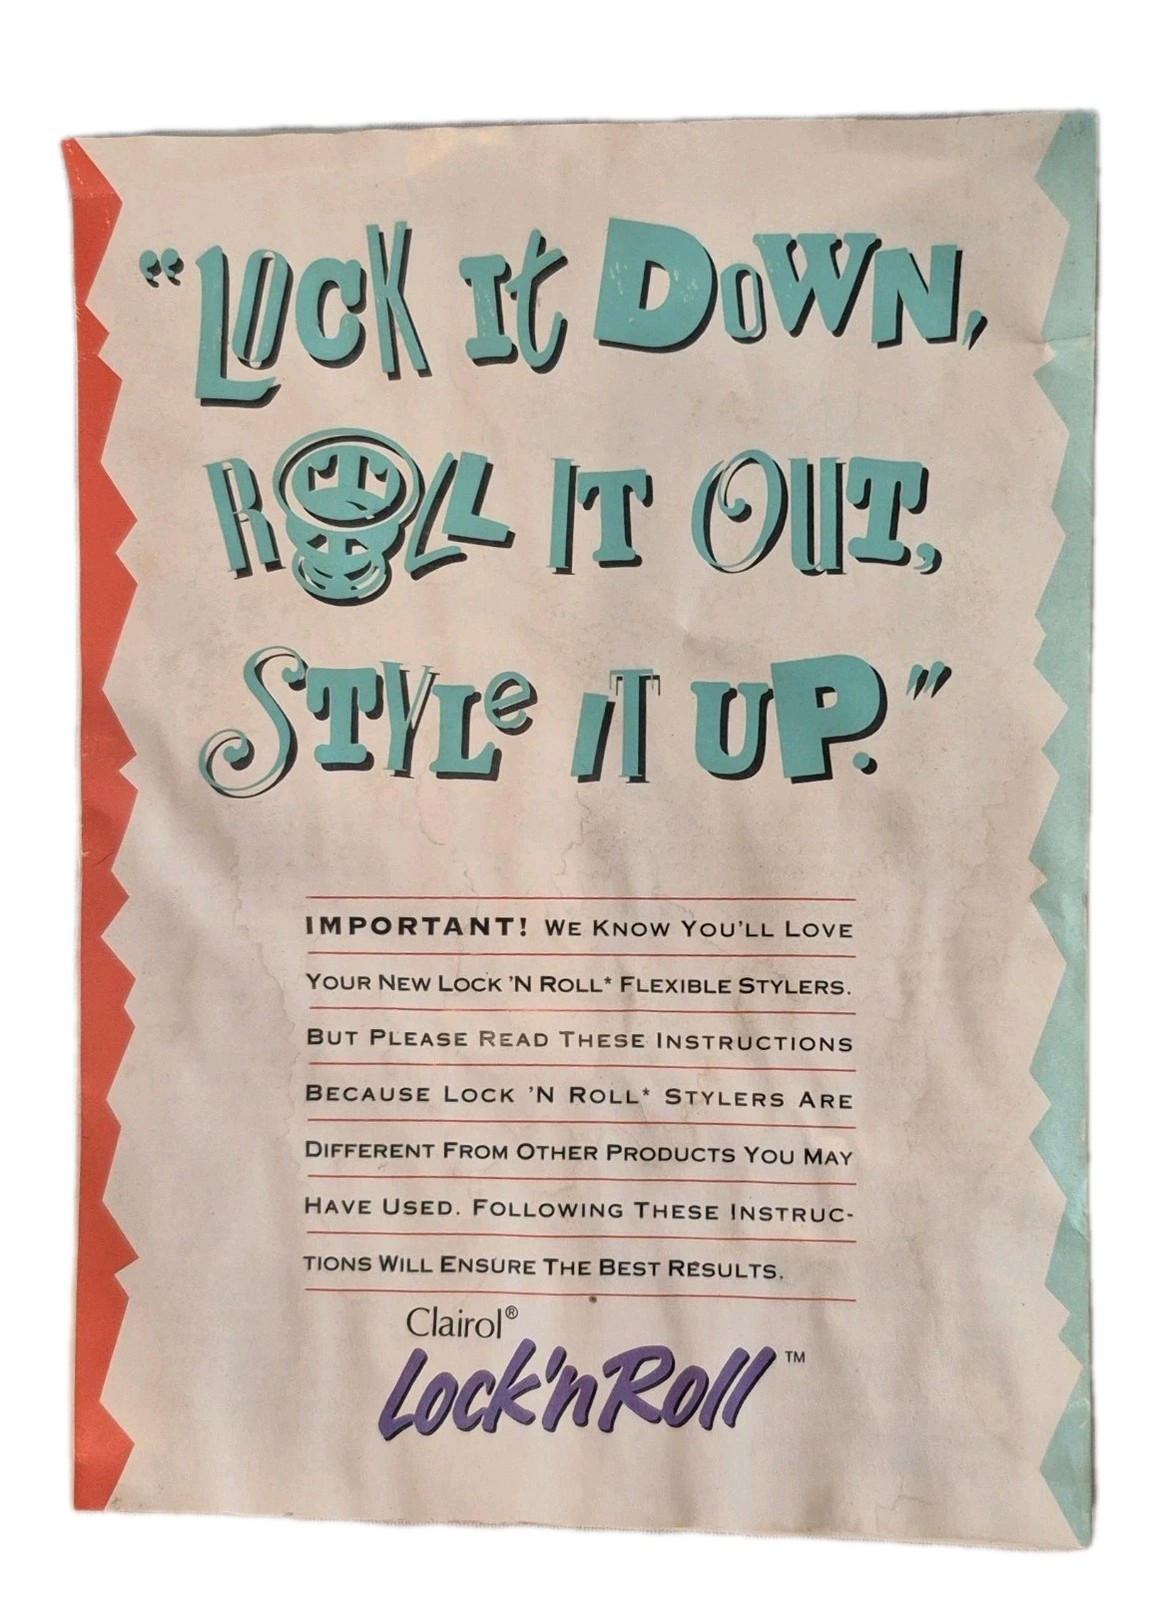 “LOCK It DOWN,
ROLL IT OUT,
STYLe IT UP.”
IMPORTANT! WE KNOW YOU'LL LOVE
YOUR NEW LOCK 'N ROLL* FLEXIBLE STYLERS.
BUT PLEASE READ THESE INSTRUCTIONS
BECAUSE LOCK 'N ROLL* STYLERS ARE
DIFFERENT FROM OTHER PRODUCTS YOU MAY
HAVE USED. FOLLOWING THESE INSTRUC-
TIONS WILL ENSURE THE BEST RESULTS.
Clairol®
Lock'nRoll™